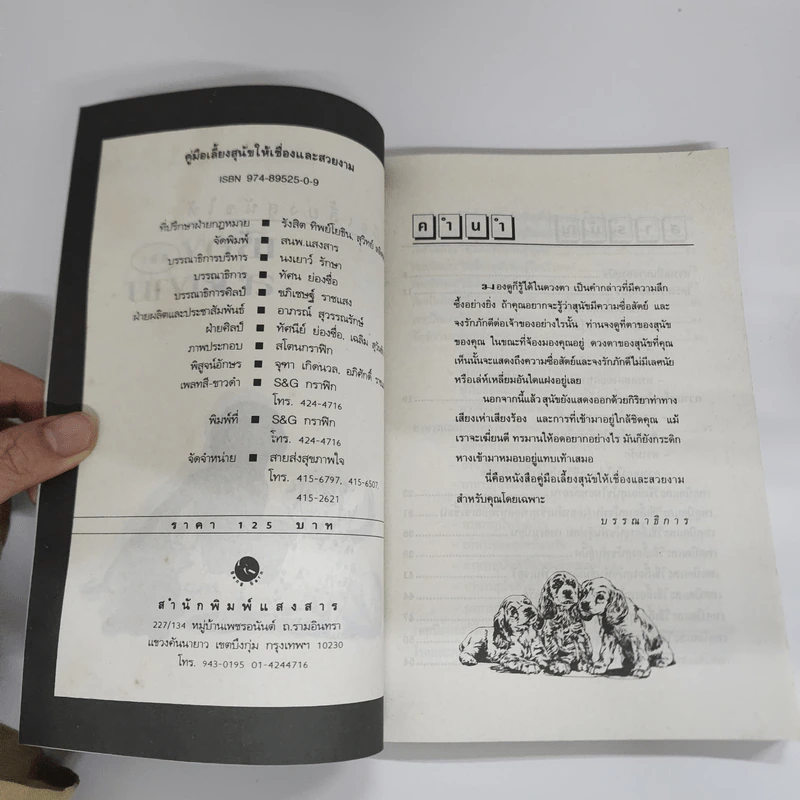 คู่มือเลี้ยงสุนัขให้เชื่องและสวยงาม
ISBN 974-89525-0-9
ที่ปรึกษาฝ่ายกฎหมาย ■ รังสิต ทิพย์โยธิน, สุวิทย์
จัดพิมพ์ ■ สนพ.แสงสาร
บรรณาธิการบริหาร ■ นงเยาว์ รักษา
บรรณาธิการ ■ ทัศน ย่องซื่อ
บรรณาธิการศิลป์ ■ ชภิเชษฐ์ ราชแสง
ฝ่ายผลิตและประชาสัมพันธ์ ■ อาภรณ์ สุวรรณรักษ์
ฝ่ายศิลป์ ■ ทัศนีย์ ย่องซื่อ, เฉลิม
ภาพประกอบ ■ สโตนกราฟิก
พิสูจน์อักษร ■ จุฑา เกิดนวล, อภิศักดิ์
เพลทสี-ขาวดำ ■ S&G กราฟิก
โทร. 424-4716
พิมพ์ที่ ■ S&G กราฟิก
โทร. 424-4716
จัดจำหน่าย ■ สายส่งสุขภาพใจ
โทร. 415-6797, 415-6507
415-2621
ราคา 125 บาท
สำนักพิมพ์แสงสาร
227/134 หมู่บ้านเพชรอนันต์ ถ.รามอินทรา
แขวงคันนายาว เขตบึงกุ่ม กรุงเทพฯ 10230
โทร. 943-0195 01-4244716
คำนำ
องดูก็รู้ได้ในดวงตา เป็นคำกล่าวที่มีความลึก
ซึ้งอย่างยิ่ง ถ้าคุณอยากจะรู้ว่าสุนัขมีความซื่อสัตย์ และ
จงรักภักดีต่อเจ้าของอย่างไรนั้น ท่านจงดูที่ตาของสุนัข
ของคุณ ในขณะที่จ้องมองคุณอยู่ ดวงตาของสุนัขที่คุณ
เห็นนั้นจะแสดงถึงความซื่อสัตย์และจงรักภักดีไม่มีเลศนัย
หรือเล่ห์เหลี่ยมอันใดแฝงอยู่เลย
นอกจากนี้แล้ว สุนัขยังแสดงออกด้วยกิริยาท่าทาง
เสียงเห่าเสียงร้อง และการที่เข้ามาอยู่ใกล้ชิดคุณ แม้
เราจะเฆี่ยนตี ทรมานให้อดอยากอย่างไร มันก็ยังกระดิก
หางเข้ามาหมอบอยู่แทบเท้าเสมอ
นี่คือหนังสือคู่มือเลี้ยงสุนัขให้เชื่องและสวยงาม
สำหรับคุณโดยเฉพาะ
บรรณาธิการ